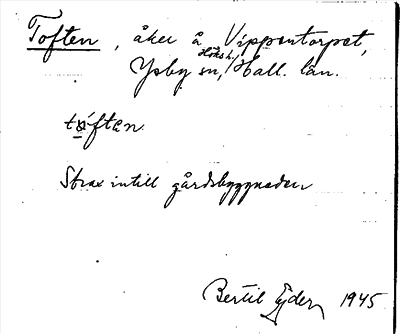 Toften, åker å Vippentorpet,
Höks h.
Ysby sn, Hall. län.
tȧ́ften
Strax intill gårdsbyggnaden
Bertil Ejder 1945